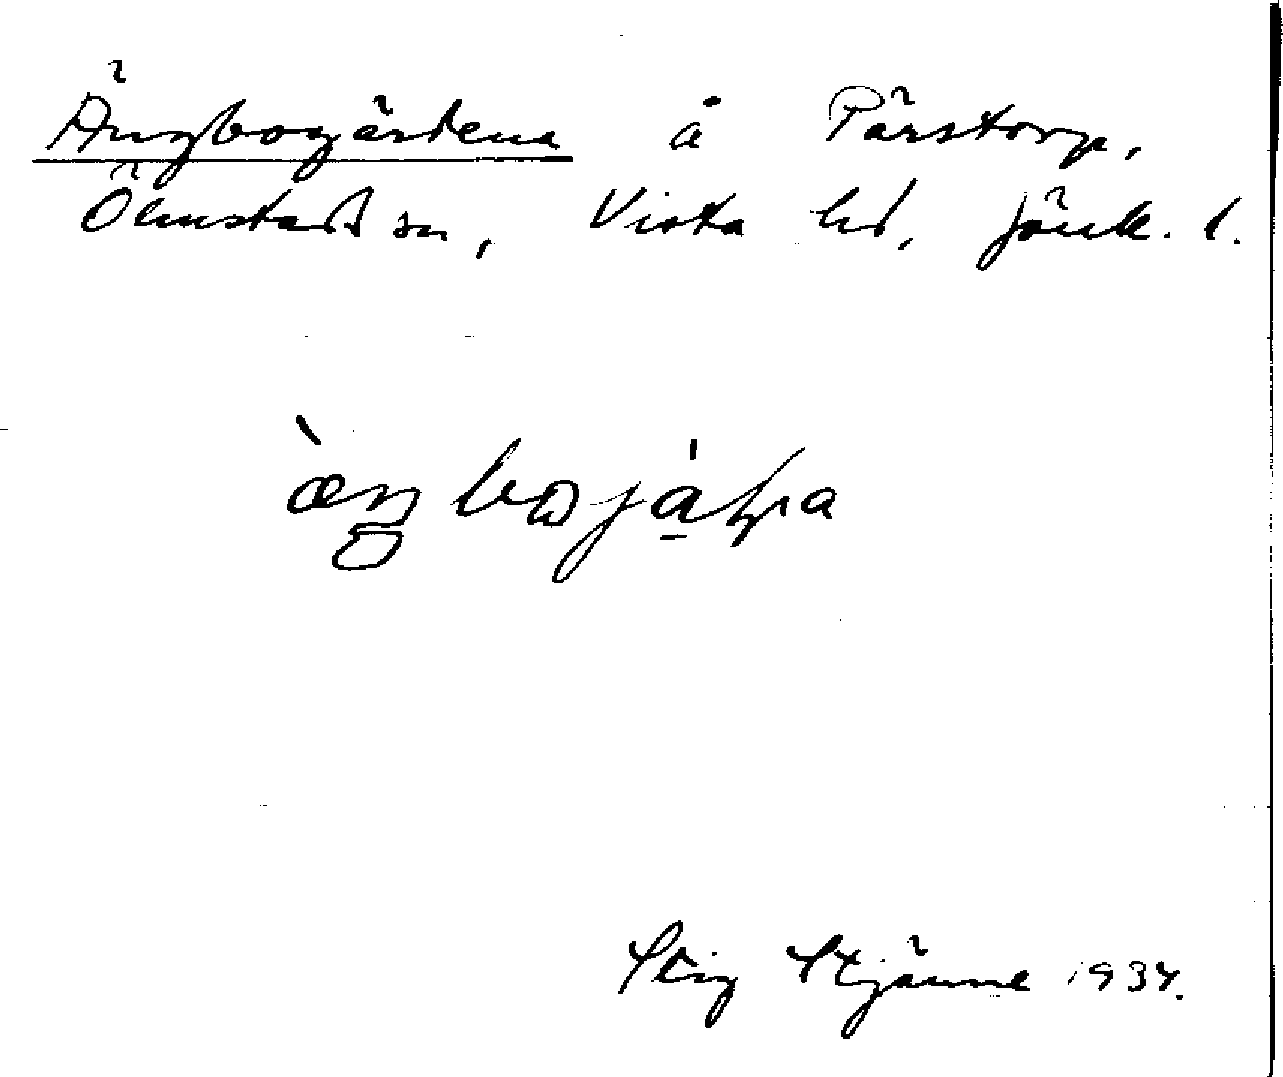 Ängbogärdena å Pärstorp,
Ölmstad sn, Vista hd, Jönk. l.
Stig Stjärne 1934.